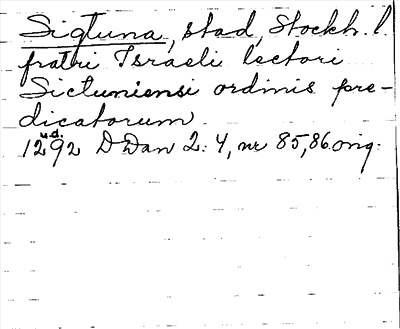 Sigtuna, stad, Stockh. l.
fratri Israeli lectori
Sictuniensi ordinis pre-
dicatorum.
u.d.
1292 DDan 2:4, nr 85,86 orig.